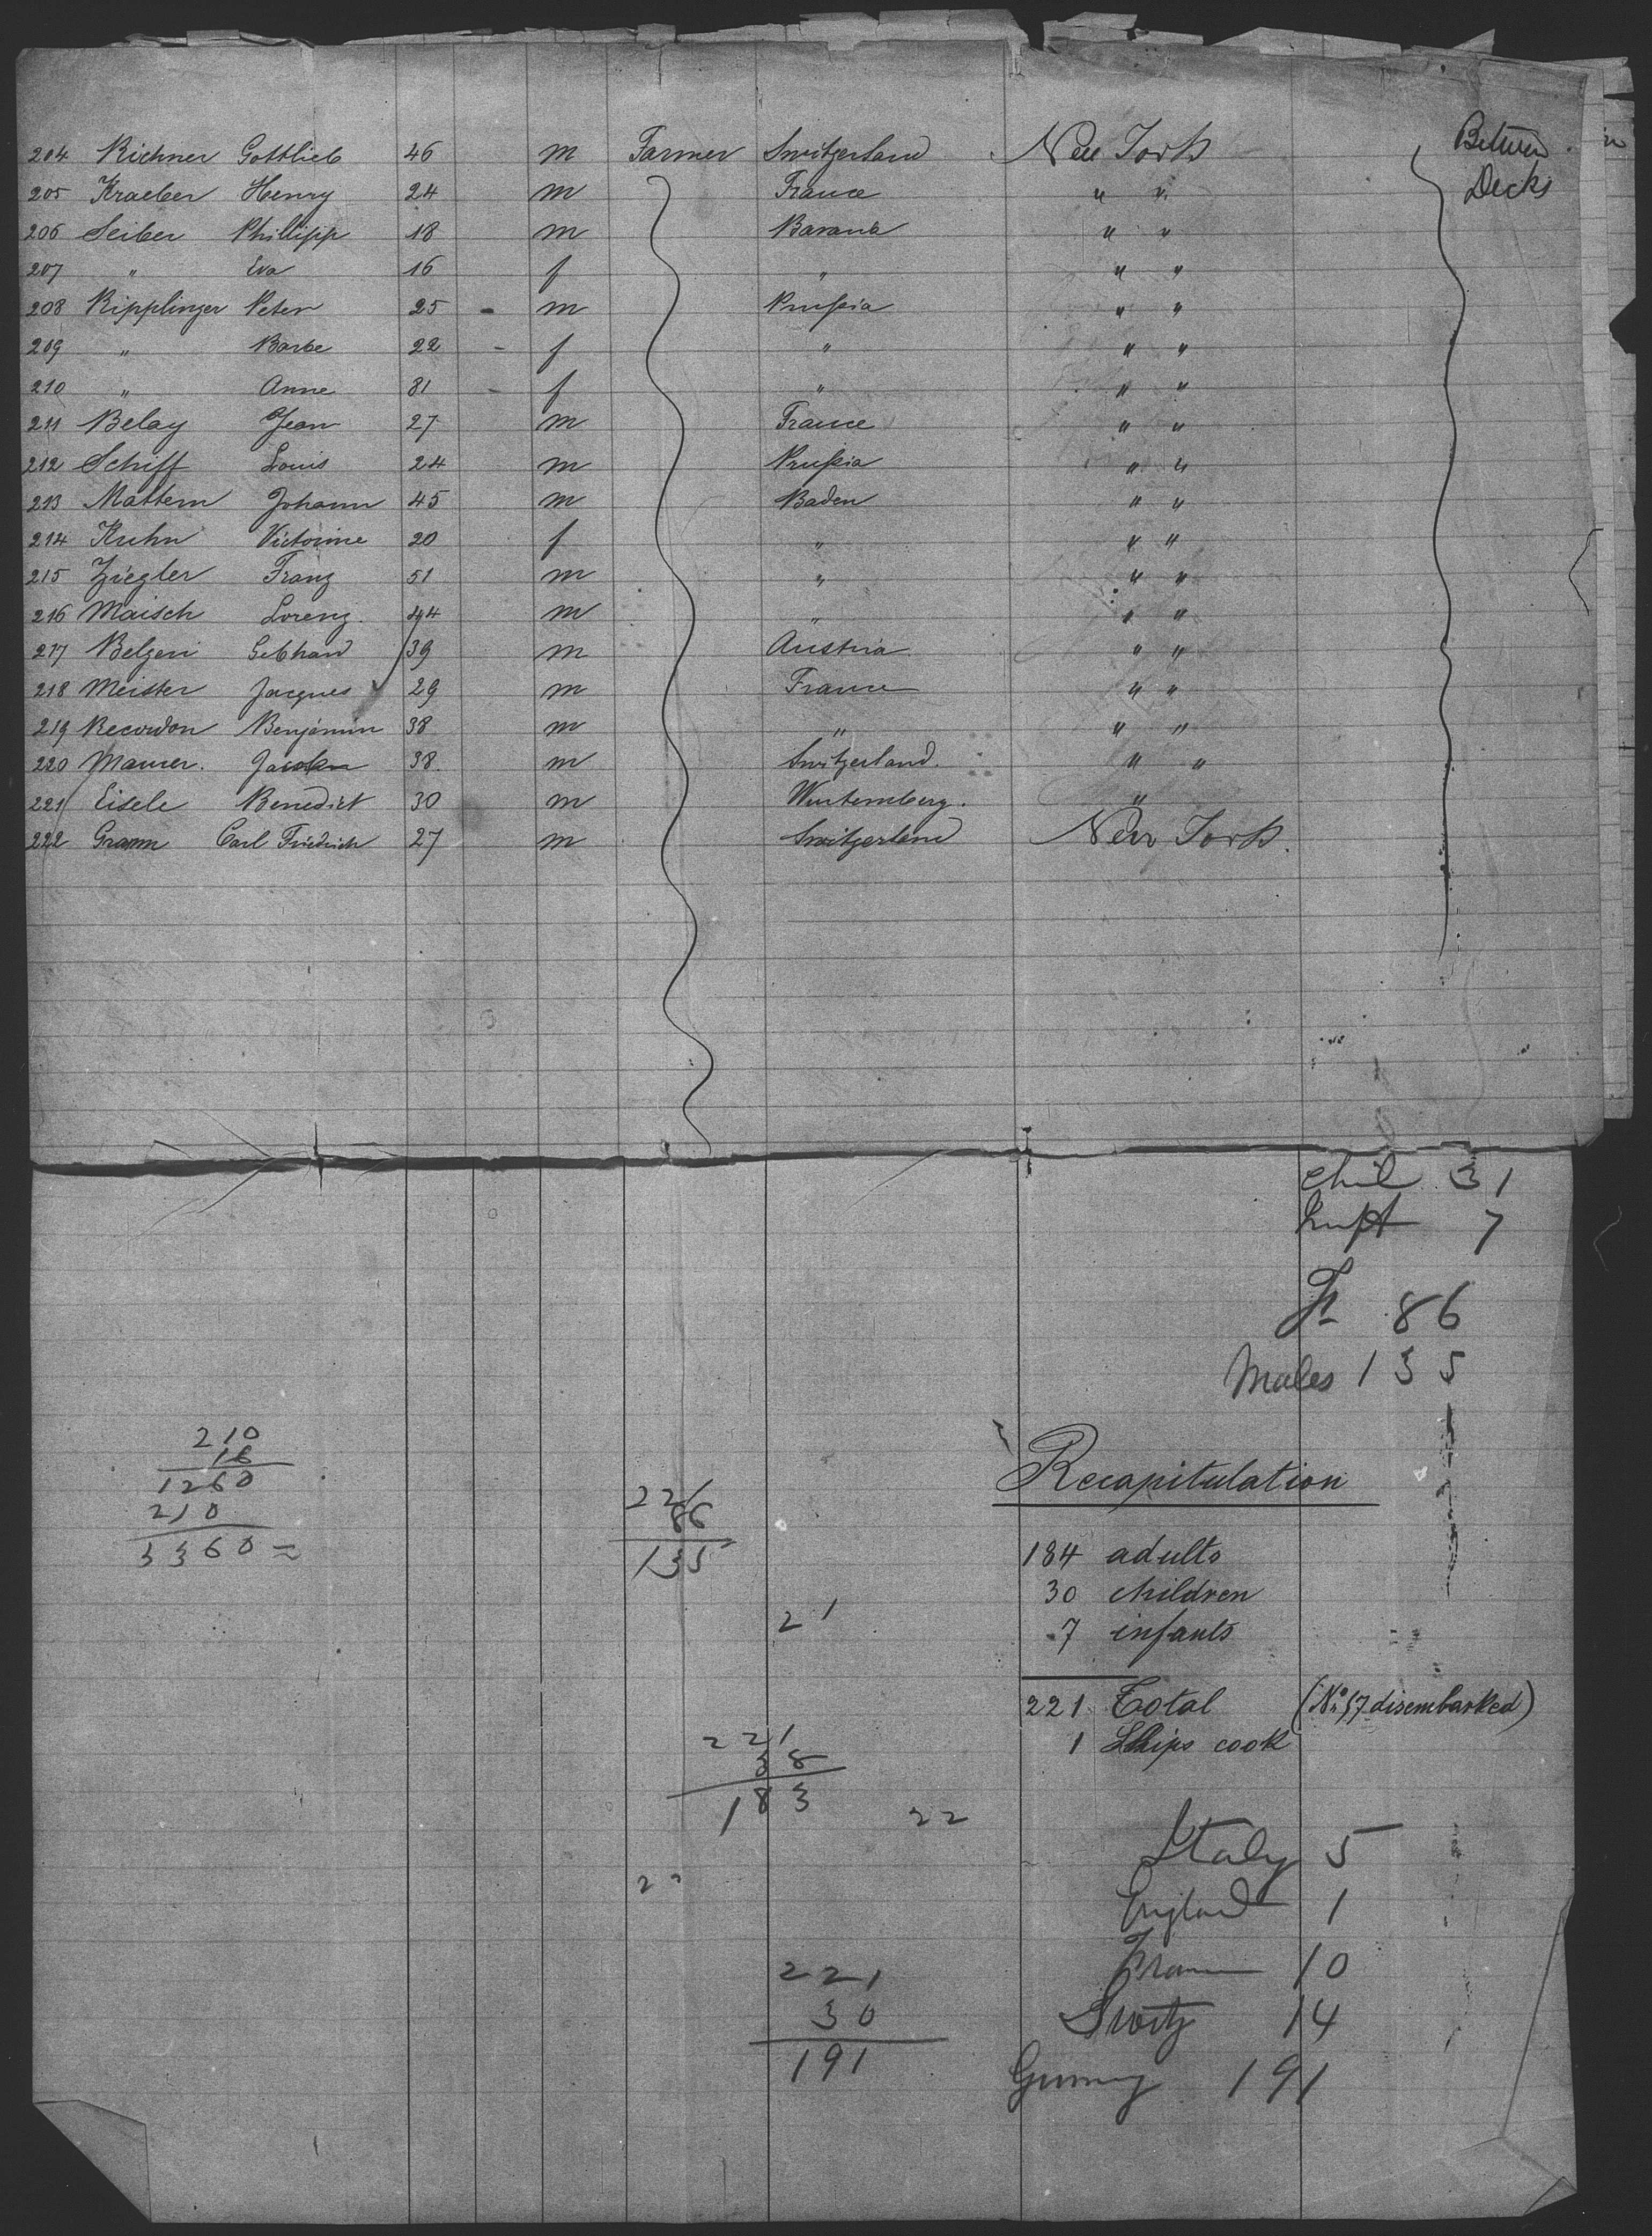 204 Richner Gottlieb 46 m Farmer Switzerland New York Between
205 Kraeber Henry 24 m France " " Decks
206 Seiber Phillipp 18 m Bavaria " "
207 " Eva 16 f " " "
208 Ripplinger Peter 25 - m Prussia " "
209 " Barbe 22 - f " " "
210 " Anne 31 - f " " "
211 Belay Jean 27 m France " "
212 Schiff Louis 24 m Prussia " "
213 Mattern Johann 45 m Baden " "
214 Kuhn Victorine 20 f " " "
215 Ziegler Franz 51 m " " "
216 Maisch Lorenz 44 m " " "
217 Belzeri Gebhard 39 m Austria " "
218 Meister Jacques 29 m France " "
219 Recordon Benjamin 38 m " " "
220 Maurer. Jacob 38 m Switzerland. " "
221 Eisele Benedict 30 m Wurtemberg. "
222 Gramm Carl Friedrich 27 m Switzerland New York.
Chil 31
Inft 7
F 86
Males 135
210
16
1260
210
3360
221
86
135
Recapitulation
184 adults
30 children
7 infants
21
221 Total (No. 57 disembarked)
1 Ships cook
221
38
183
22
Italy 5
England 1
22
France 10
221
30
191
Switz 14
Germy 191